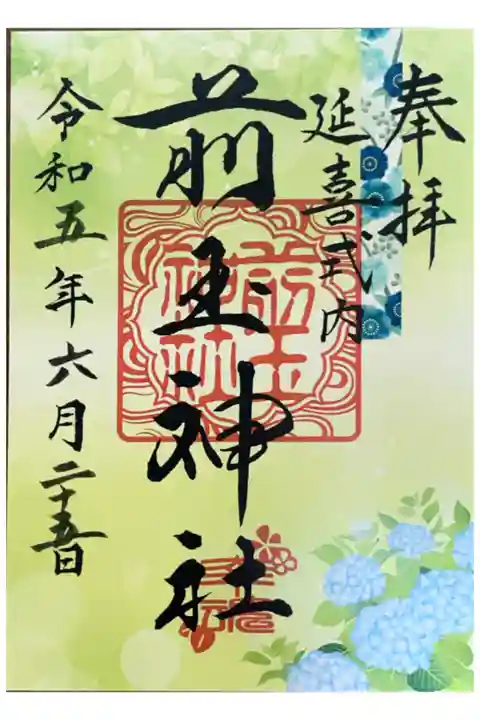 奉拝
延喜式内
前玉神社
前玉
神社
令和五年六月二十五日